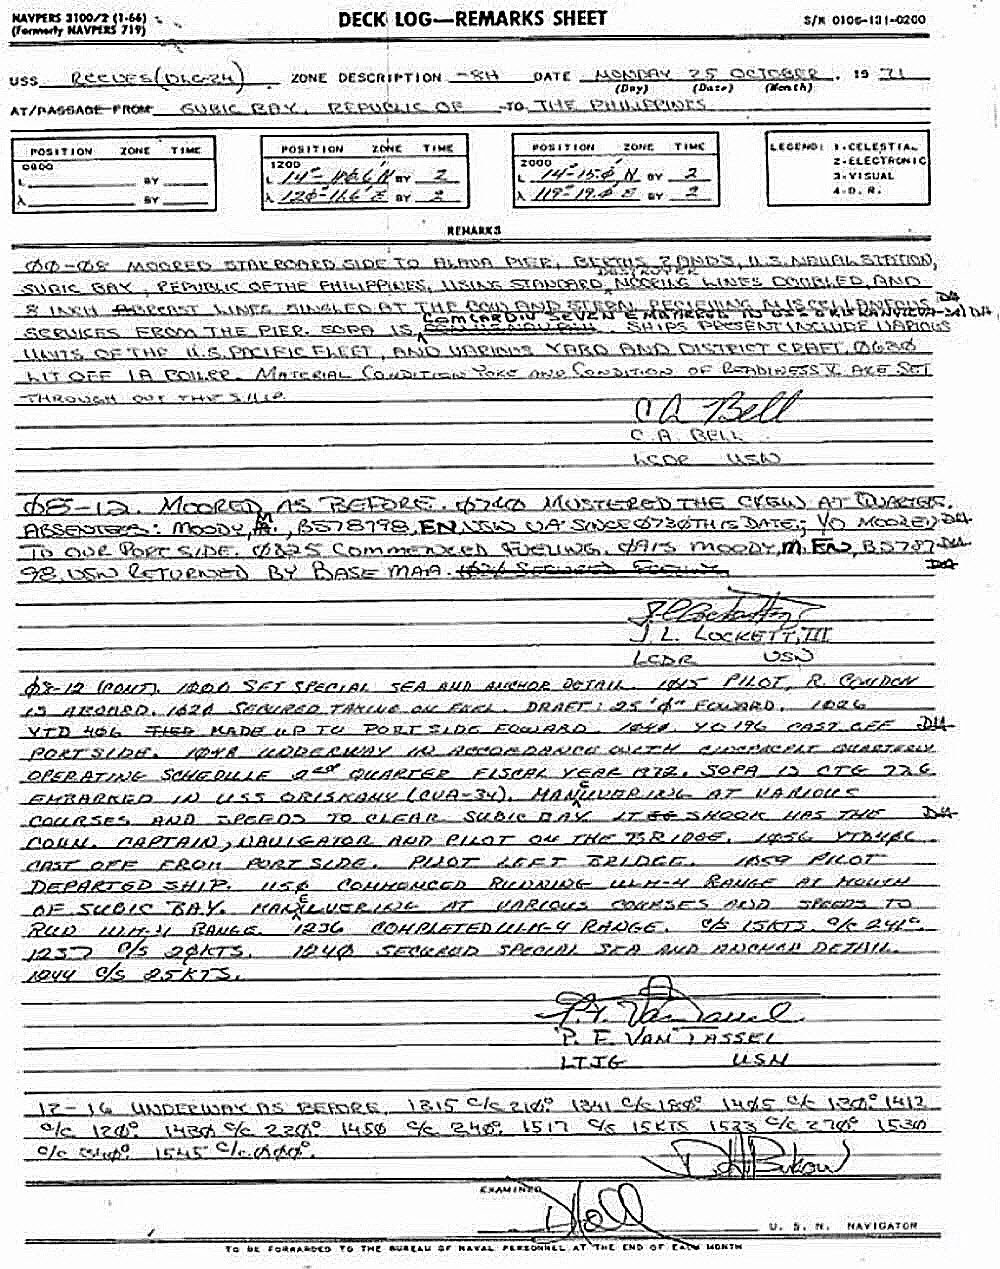 NAVPERS 3100/2 (1-66)
(Formerly NAVPERS 719)
DECK LOG—REMARKS SHEET
S/N 0106-131-0200
USS REEVES (DLG-24) ZONE DESCRIPTION -8H DATE MONDAY 25 OCTOBER, 19 71
(Day) (Date) (Month)
AT/PASSAGE FROM SUBIC BAY, REPUBLIC OF TO THE PHILIPPINES
POSITION ZONE TIME
0800
L BY
λ BY
POSITION ZONE TIME
1200
L BY 2
λ BY 2
POSITION ZONE TIME
2000
L 14°-15.0' N BY 2
λ 119°-19.0' E BY 2
LEGEND: 1-CELESTIAL
2-ELECTRONIC
3-VISUAL
4-D. R.
REMARKS
00-08 MOORED STARBOARD SIDE TO ALAVA PIER, BERTHS 2 AND 3, U.S. NAVAL STATION,
DESTROYER
SUBIC BAY, REPUBLIC OF THE PHILIPPINES, USING STANDARD MOORING LINES DOUBLED, AND
8 INCH LINES SINGLED AT THE BOW AND STERN. RECEIVING MISCELLANEOUS
COMCARDIV SEVEN EMBARKED IN USS ORISKANY (CVA-34)
SERVICES FROM THE PIER. SOPA IS SHIPS PRESENT INCLUDE VARIOUS
UNITS OF THE U.S. PACIFIC FLEET, AND VARIOUS YARD AND DISTRICT CRAFT. 0630
LIT OFF 1A BOILER. MATERIAL CONDITION YOKE AND CONDITION OF READINESS V ARE SET
THROUGH OUT THE SHIP.
C A Bell
C. A. BELL
LCDR USN
08-12 MOORED AS BEFORE. 0740 MUSTERED THE CREW AT QUARTERS.
ABSENTEES: MOODY, M., B578798, EN, USN UA SINCE 0730 THIS DATE; YO MOORED
TO OUR PORT SIDE. 0825 COMMENCED FUELING. 0915 MOODY, M. EN, B5787
98 USN RETURNED BY BASE MAA. 1020 SECURED FUELING.
J. L. LOCKETT, III
LCDR USN
08-12 (CONT). 1000 SET SPECIAL SEA AND ANCHOR DETAIL. 1015 PILOT, R. CONDON
IS ABOARD. 1020 SECURED TAKING ON FUEL. DRAFT: 25'0" FOWARD. 1026
YTB 406 TIED MADE UP TO PORT SIDE FOWARD. 1040 YO 196 CAST OFF
PORTSIDE. 1048 UNDERWAY IN ACCORDANCE WITH CINCPACFLT QUARTERLY
OPERATING SCHEDULE 2nd QUARTER FISCAL YEAR 1972. SOPA IS CTG 77.6
EMBARKED IN USS ORISKANY (CVA-34). MANEUVERING AT VARIOUS
COURSES AND SPEEDS TO CLEAR SUBIC BAY. SHOOK HAS THE
CONN. CAPTAIN, NAVIGATOR AND PILOT ON THE BRIDGE. 1056
CAST OFF FROM PORT SIDE. PILOT LEFT BRIDGE. 1059 PILOT
DEPARTED SHIP. COMMENCED RUNNING WLM-4 RANGE AT MOUTH
OF SUBIC BAY. MANEUVERING AT VARIOUS COURSES AND SPEEDS TO
RUN WLM-4 RANGE. 1236 COMPLETED WLM-4 RANGE. C/S 15KTS. C/C 241°.
1237 C/S 20KTS. 1240 SECURED SPECIAL SEA AND ANCHOR DETAIL.
1244 C/S 25KTS.
P. E. VAN TASSEL
LTJG USN
12-16 UNDERWAY AS BEFORE. 1315 C/C 210°. 1341 C/C 180°. 1405 C/C 130°. 1412
C/C 120°. 1430 C/C 220°. 1450 C/C 240°. 1517 C/S 15KTS. 1523 C/C 270°. 1530
C/C 1545 C/C 000°.
EXAMINED
U. S. N. NAVIGATOR
TO BE FORWARDED TO THE BUREAU OF NAVAL PERSONNEL AT THE END OF EACH MONTH